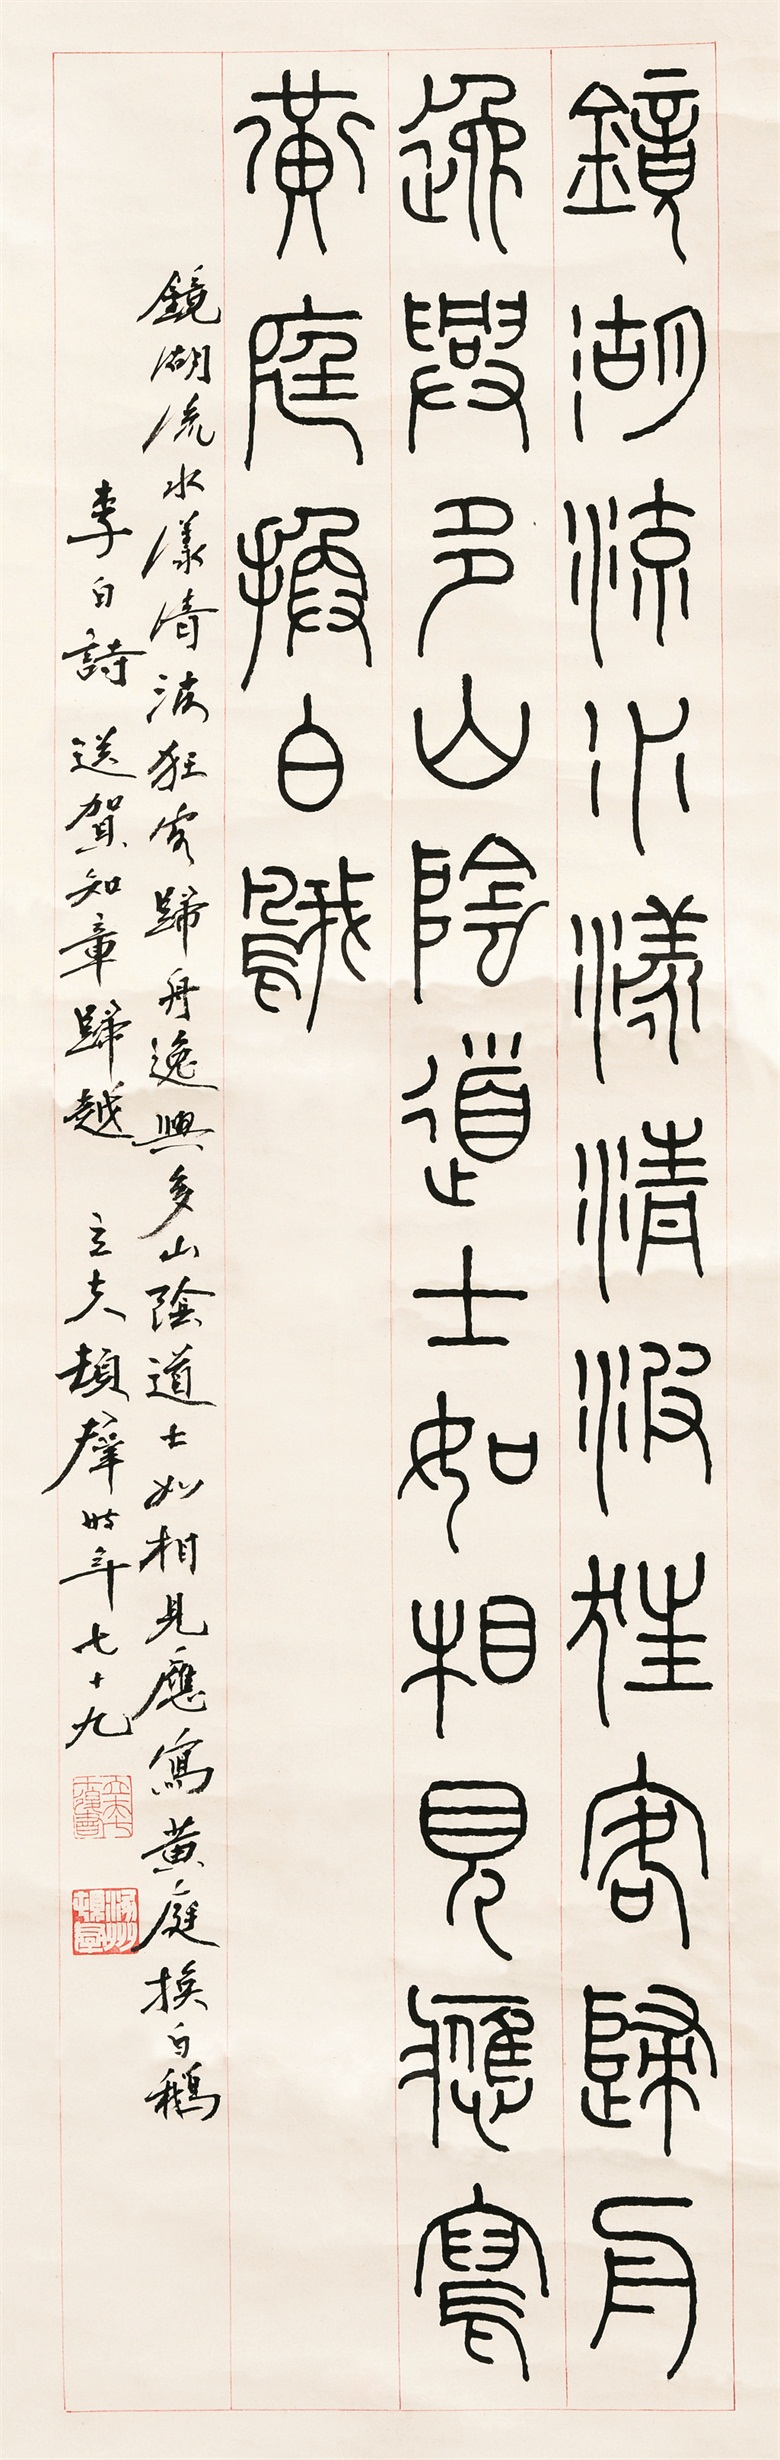 鏡湖流水漾清波狂客歸舟
逸興多山陰道士如相見應寫
黃庭換白鵝
鏡湖流水漾清波狂客歸舟逸興多山陰道士如相見應寫黃庭換白鵝
李白詩送賀知章歸越 立夫頓羣時年七十九